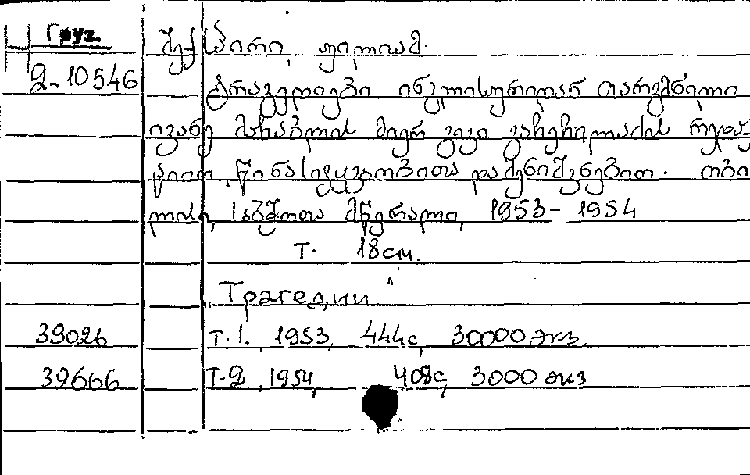 Груз.
2-10546
შექსპირი, უილიამ.
ტრაგედიები ინგლისურიდან თარგმნილი
ივანე მაჩაბლის მიერ გივი გაჩეჩილაძის რედაქ
ციით, წინასიტყვაობითა და შენიშვნებით. თბი
ლისი, საბჭოთა მწერალი, 1953-1954
т. 18см.
Трагедии"
39026 т.1. 1953, 444с, 30000 экз
39666 т-2, 1954, 408с, 3000 экз